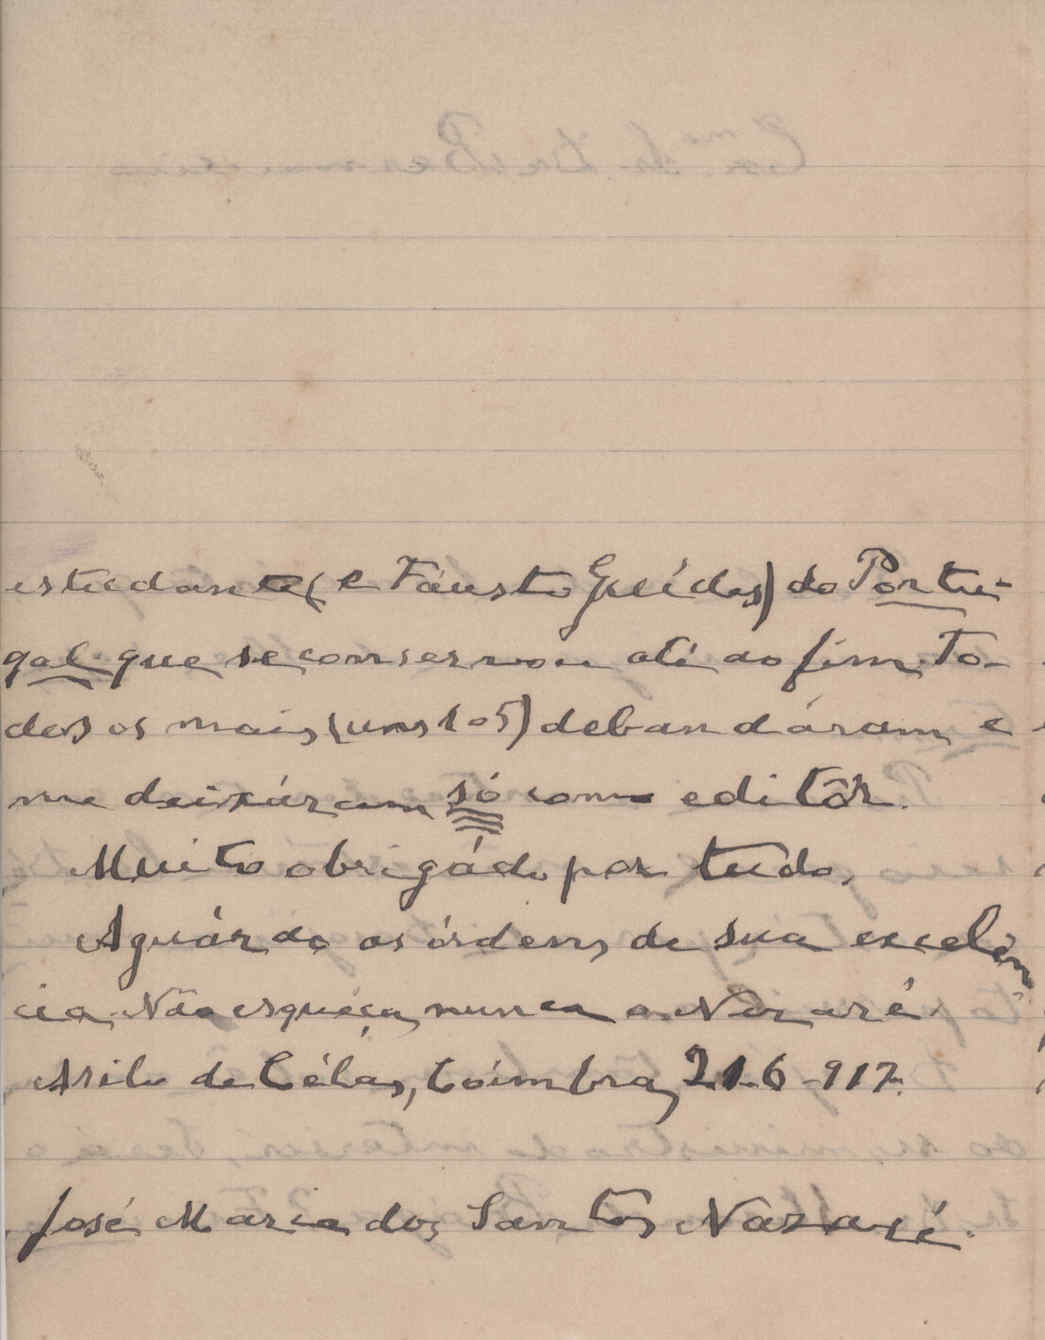 estudante (e Fáusto Guédes) do Portu-
gal que se conservou até ao fim. To-
dos os mais (uns 4 o 5) debandáram e
me deixáram só como editôr.
Muito obrigádo por tudo.
Aguárdo as órdens de sua excelên
cia. Não esquéça nunca o Nazaré.
Asilo de Célas, Coímbra, 21-6-917.
José Maria dos Santos Nazaré.